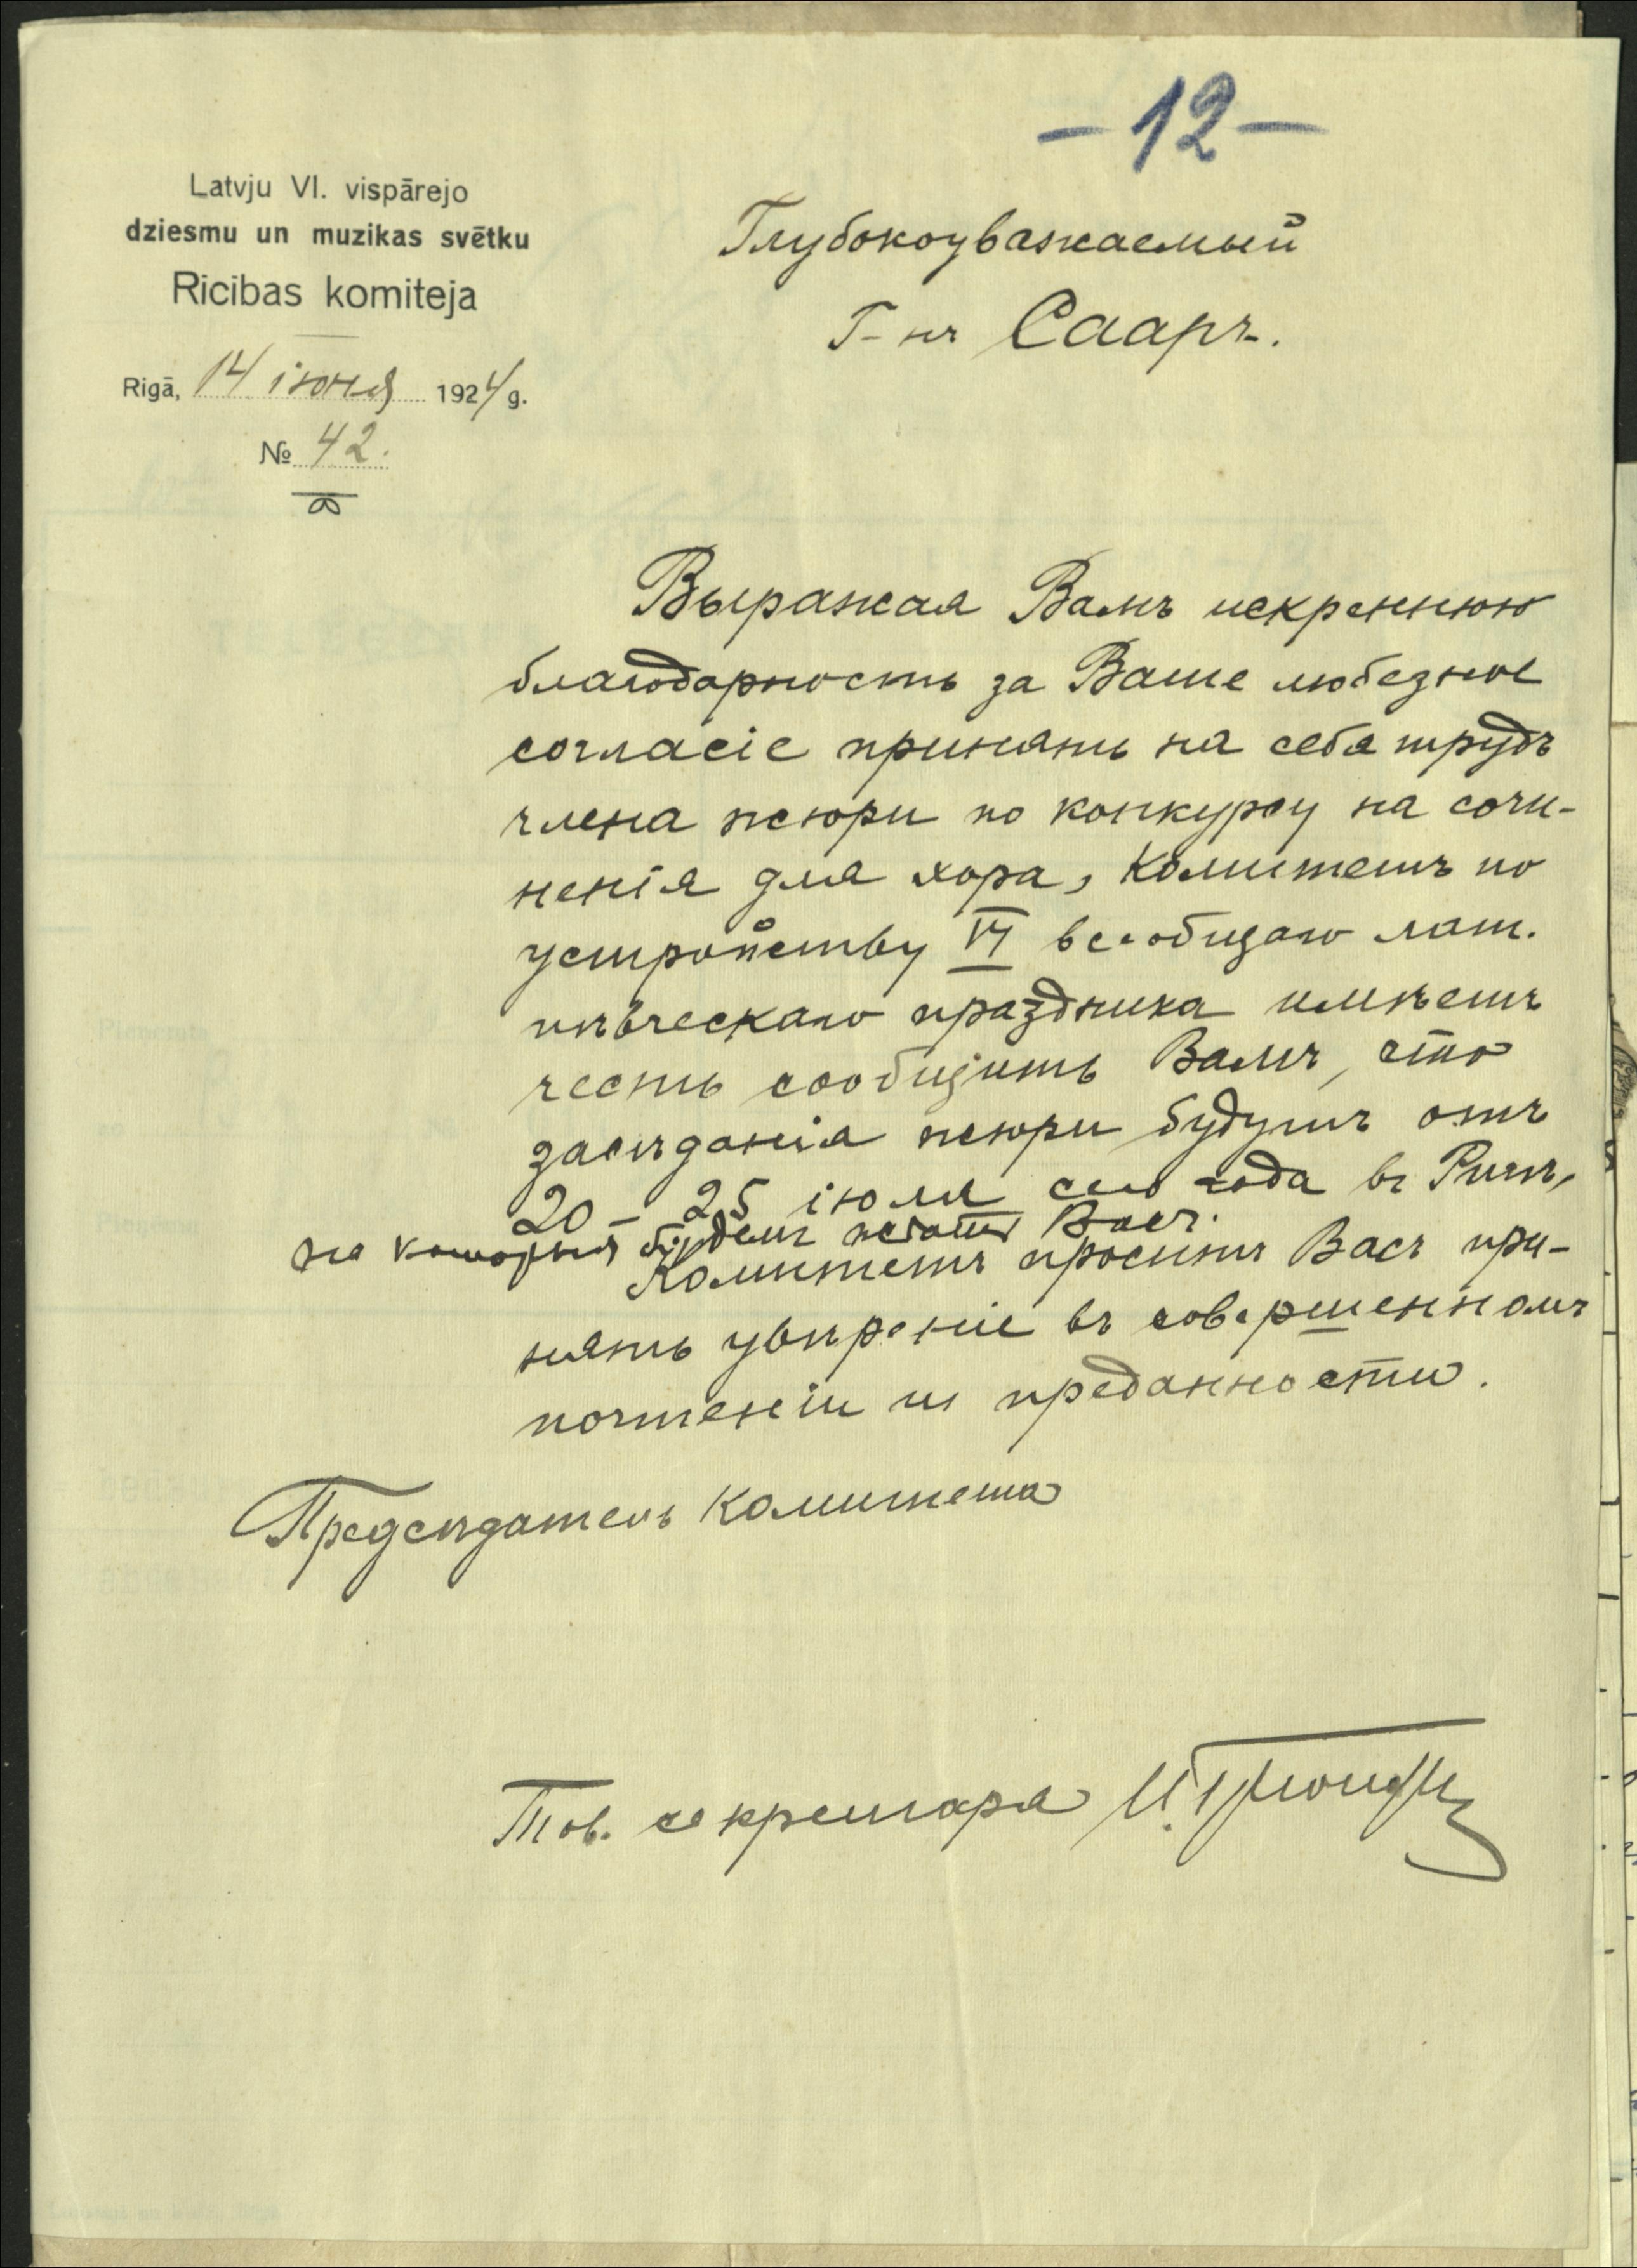 -12-
Latvju VI. vispārejo
dziesmu un muzikas svētku
Rīcības komiteja
Rīgā, 14 іюня 1924 g.
№ 42.
Глубокоуважаемый
Г-нъ Сааръ.
Выражая Вамъ искреннюю
благодарность за Ваше любезное
согласіе принять на себя трудъ
члена жюри по конкурсу на сочи-
ненія для хора, Комитетъ по
устройству VI всеобщаго лат.
пѣвческаго праздника имѣетъ
честь сообщить Вамъ, что
засѣданія жюри будутъ отъ
20 - 25 іюля сего года въ Ригѣ,
на которыя будемъ ждать Васъ.
Комитетъ проситъ Васъ при-
нять увѣреніе въ совершенномъ
почтеніи и преданности.
Предсѣдатель Комитета
Тов. секретаря